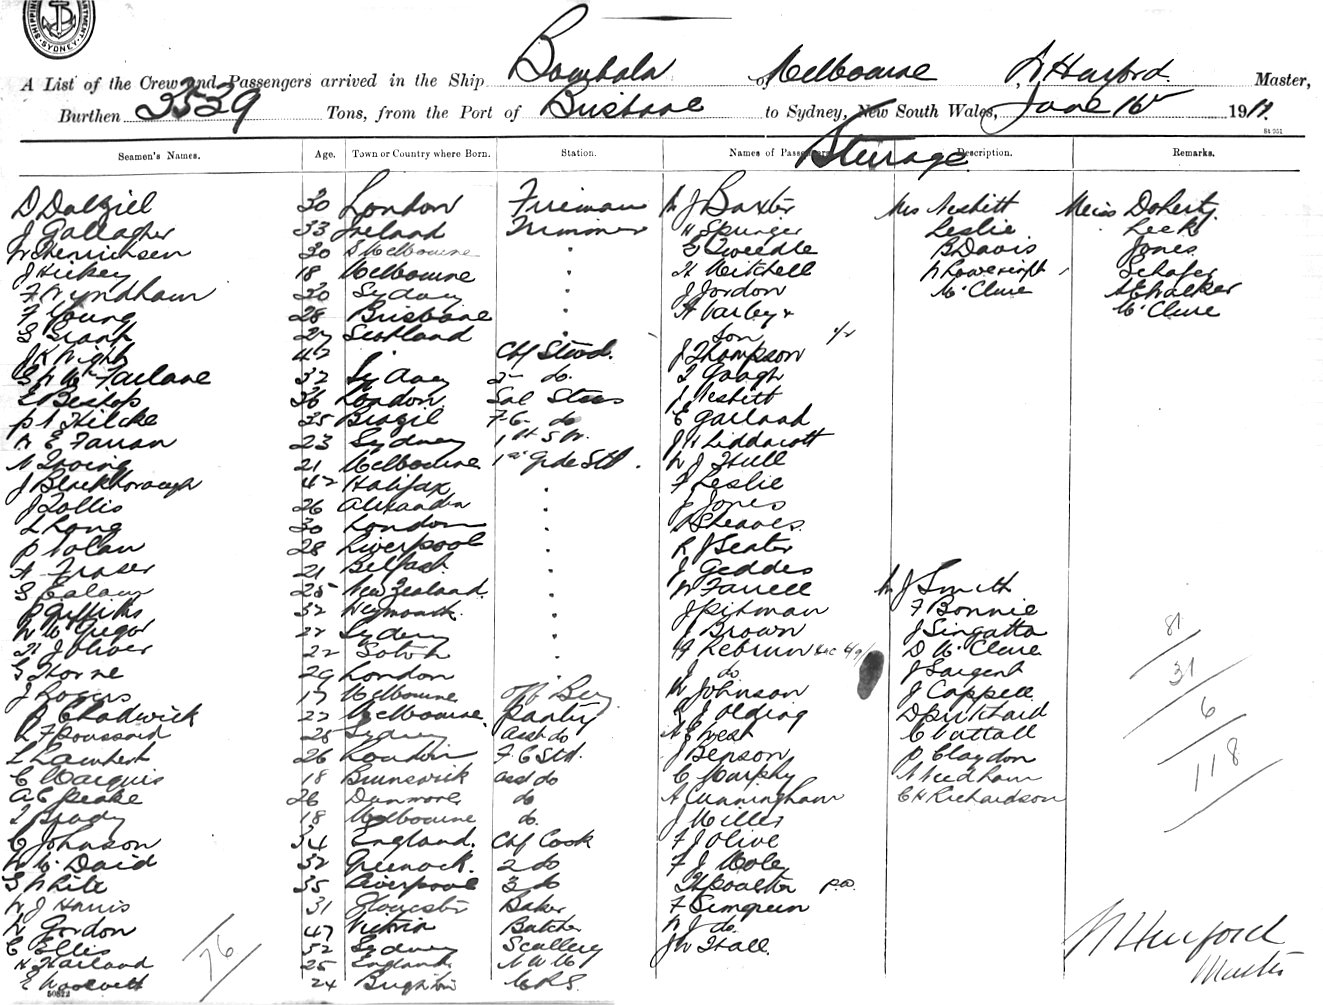 SHIPPING DEPARTMENT. SYDNEY
A List of the Crew and Passengers arrived in the Ship Bombala of Melbourne, Master,
Burthen 3539 Tons, from the Port of Brisbane to Sydney, New South Wales, June 16th 1911.
84 951
Steerage
Seamen's Names. Age. Town or Country where Born. Station. Names of Passengers. Description. Remarks.
D Dalziel 30 London Fireman W J Baxter Mrs Nesbitt Miss Doherty
J Gallagher 33 Ireland Trimmer H Springer Leslie Leek
W Henrichsen 30 S Melbourne " G Tweedle B Davis Jones
J Hickey 18 Melbourne " H Mitchell Schafer
F Wyndham 20 Sydney " J Jordon McClure
F Young 28 Brisbane " H Varley & McClure
G Grant 27 Scotland " Son
J H Wight 42 " Chf Stwd. J Thompson
McFarlane 32 Sydney 2 do. J Gough
E Bishop 36 London Sal Stwd J Nesbitt
Hilcke 35 Brazil F C do E Garland
W E Farran 23 Sydney J H Liddacott
N Irving 21 Melbourne W J Hull
J Blackborough 42 Halifax " F Leslie
J Follis 26 " J Jones
L Long 30 London "
P Nolan 28 Liverpool " R J Seater
A Fraser 21 Belfast " J Geddes
25 New Zealand " W Farrell W J Smith
Griffiths 32 Weymouth " J Pitman F Bonnie
W McGregor 22 Sydney " Brown J Singatta 81
H J Oliver 22 " D McClure
G Thorne 29 London " J do J Sargent 31
J Rogers 17 Melbourne W Johnson J Cappell
Chadwick 22 Melbourne Pantry Olding D Pritchard 6
Poussard 28 Sydney asst do West C Nuttall
L Lambert 26 London F C Std. J Benson P Claydon 118
C Marquis 18 Brunswick asst do C Murphy Needham
A E Peake 26 Dunmore do A Cunningham C H Richardson
Brady 18 Melbourne do. J Miller
C Johnson 34 England. Chf Cook F Olive
W McDaid 52 Greenock. 2 do F J Moley
G White 35 Liverpool 3 do
W J Harris 31 Gloucester Baker F Simpson
W Gordon 47 Victoria Butcher W J do.
C Ellis 52 Sydney Scullery J W Hall
H Harland 25 England
E 24 Brighton
76
Master
50822